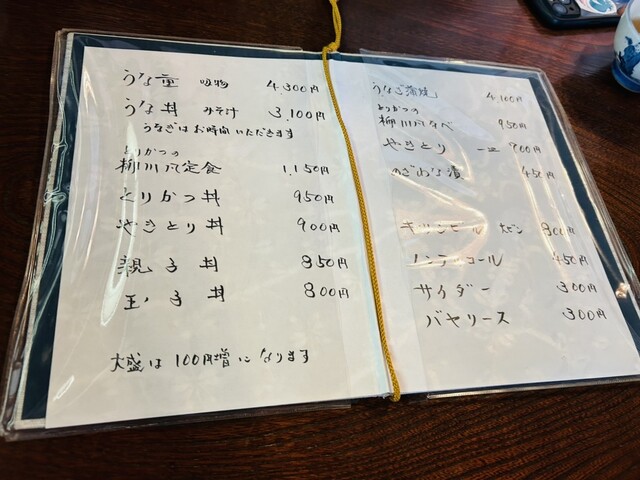 うな重 吸物 4,300円
うな丼 みそ汁 3,100円
うなぎはお時間いただきます
とりかつの
柳川风定食 1,150円
とりかつ丼 950円
やきとり丼 900円
親子丼 850円
玉子丼 800円
大盛は100円増になります
うなぎ蒲焼 4,100円
とりかつの
柳川风なべ 950円
やきとり 一皿 700円
のざわな漬 450円
キリンビール 大ビン 800円
ノンアルコール 450円
サイダー 300円
バヤリース 300円